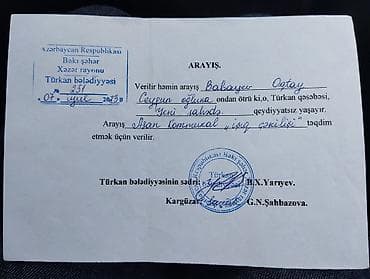 Azərbaycan Respublikası
Bakı şəhər
Xəzər rayonu
Türkan bələdiyyəsi
231
07 iyul
ARAYIŞ.
Verilir həmin arayış Babayev Oqtay
Ceyhun oğluna ondan ötrü ki,o, Türkan qəsəbəsi,
Yeni sahədə qeydiyyatsız yaşayır.
Arayış Azan Kommunal „işıq çəkilişi" təqdim
etmək üçün verilir.
Türkan bələdiyyəsinin sədri: B.X.Yarıyev.
Kargüzar: G.N.Şahbazova.
Respublikası Bakı
Türkan